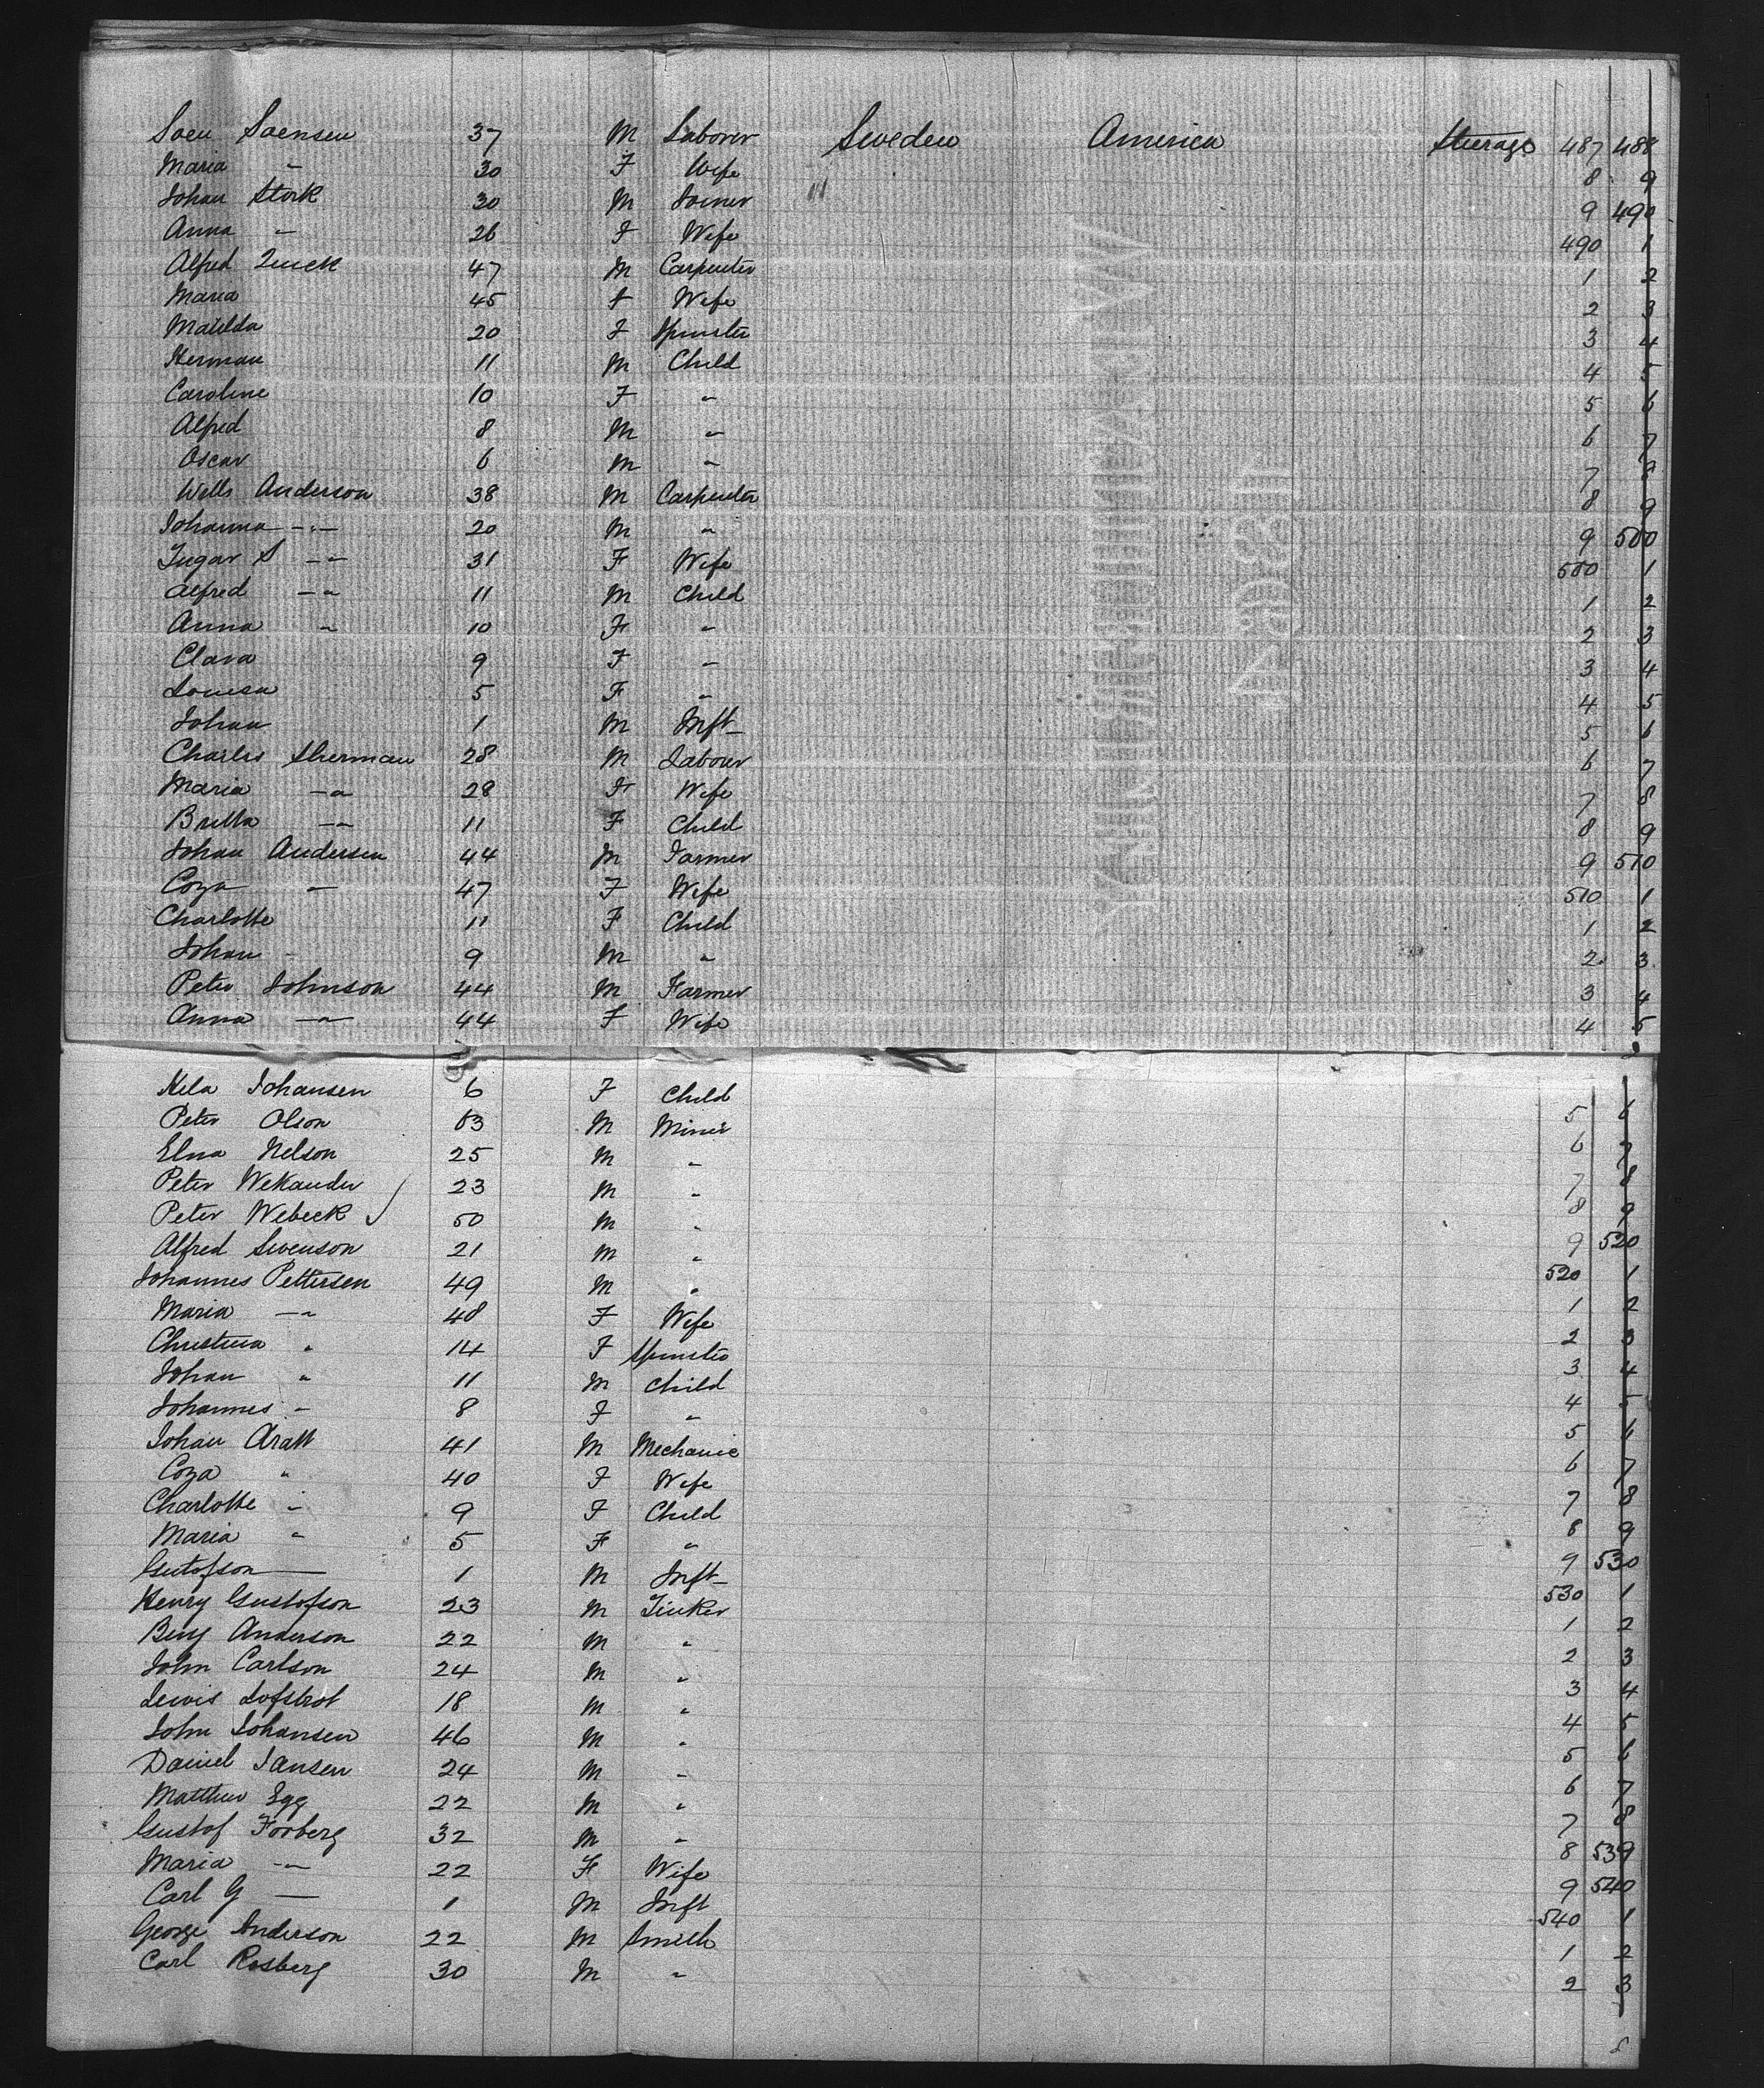 Soen Soensen 37 M Laborer Sweden America Steerage 487 488
Maria " 30 F Wife 8 9
Johan Stork 30 M Joiner " 9 490
Anna " 26 F Wife 490 1
Alfred Quick 47 M Carpenter 1 2
Maria 45 F Wife 2 3
Matilda 20 F Spinster 3 4
Herman 11 M Child 4 5
Caroline 10 F " 5 6
Alfred 8 M " 6 7
Oscar 6 M " 7 8
Wells Anderson 38 M Carpenter 8 9
Johanna -"- 20 M " 9 500
Ingar S -"- 31 F Wife 500 1
Alfred -"- 11 M Child 1 2
Anna " 10 F " 2 3
Clara 9 F " 3 4
Louisa 5 F " 4 5
Johan 1 M Inft- 5 6
Charles Sherman 28 M Labour 6 7
Maria -"- 28 F Wife 7 8
Britta -"- 11 F Child 8 9
Johan Andersen 44 M Farmer 9 510
Coza " 47 F Wife 510 1
Charlotte 11 F Child 1 2
Johan - 9 M " 2 3
Peter Johnson 44 M Farmer 3 4
Anna -"- 44 F Wife 4 5
Hela Johansen 6 F Child 5 6
Peter Olson 63 M Miner 6 7
Elna Nelson 25 M " 7 8
Peter Wekander 23 M " 8 9
Peter Webeck 50 M " 9 520
Alfred Swenson 21 M " 520 1
Johannes Pettersen 49 M " 1 2
Maria -"- 48 F Wife 2 3
Christina " 14 F Spinster 3 4
Johan " 11 M Child 4 5
Johannes " 8 F " 5 6
Johan Aratt 41 M Mechanic 6 7
Coza " 40 F Wife 7 8
Charlotte " 9 F Child 8 9
Maria " 5 F " 9 530
Gustofson — 1 M Inft- 530 1
Henry Gustofson 23 M Tinker 1 2
Benj Anderson 22 M " 2 3
John Carlson 24 M " 3 4
Lewis Lofstrot 18 M " 4 5
John Johansen 46 M " 5 6
Daniel Jansen 24 M " 6 7
Matthew Egg 22 M " 7 8
Gustof Forberg 32 M " 8 539
Maria -"- 22 F Wife 9 540
Carl G — 1 M Inft 540 1
George Anderson 22 M Smith 1 2
Carl Rosberg 30 M " 2 3